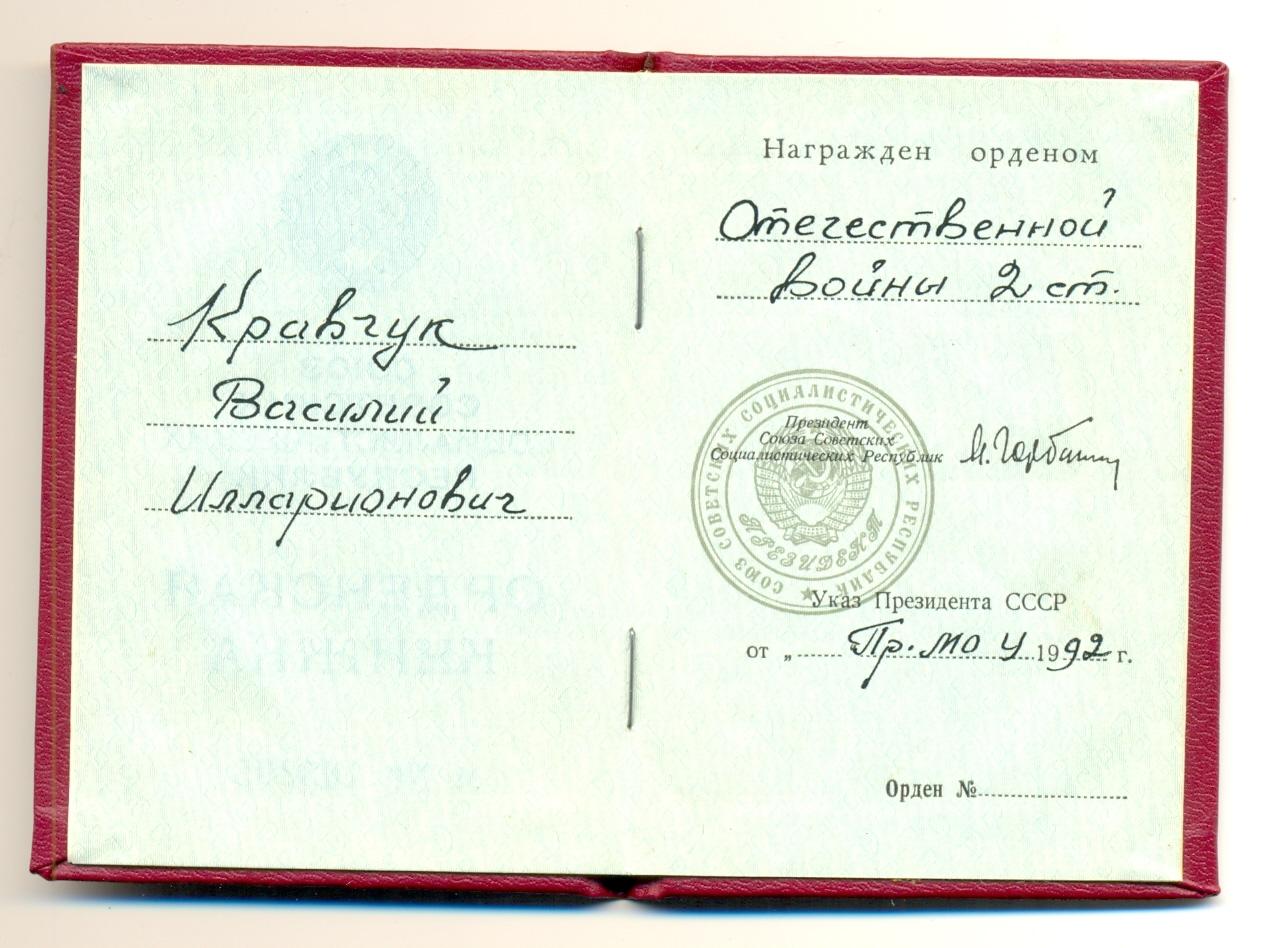 Кравчук
Василий
Илларионович
Награжден орденом
Отечественной
войны 2 ст.
СОЮЗ СОВЕТСКИХ СОЦИАЛИСТИЧЕСКИХ РЕСПУБЛИК
Президент
Союза Советских
Социалистических Республик
М. Горбачев
ПРЕЗИДЕНТ
Указ Президента СССР
от „ Пр. МО У 1992 г.
Орден №